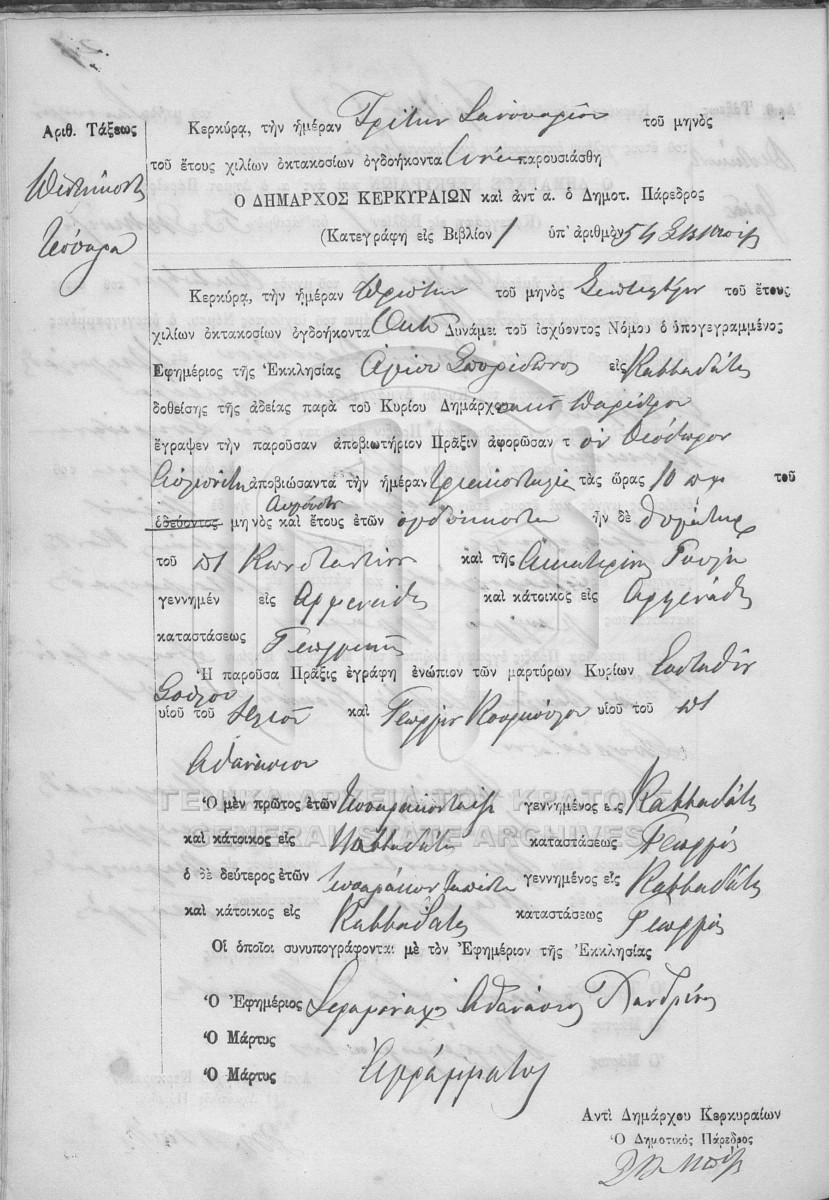 Ἀριθ. Τάξεως
Πεντήκοντα
τέσσαρα
Κερκύρᾳ, τὴν ἡμέραν Τρίτην Ἰανουαρίου τοῦ μηνὸς
τοῦ ἔτους χιλίων ὀκτακοσίων ὀγδοήκοντα ἐννέα παρουσιάσθη
Ὁ ΔΗΜΑΡΧΟΣ ΚΕΡΚΥΡΑΙΩΝ καὶ ἀντ' ἀ. ὁ Δημοτ. Πάρεδρος
(Κατεγράφη εἰς Βιβλίον 1 ὑπ' ἀριθμὸν 54
Κερκύρᾳ, τὴν ἡμέραν πρώτην τοῦ μηνὸς Σεπτεμβρίου τοῦ ἔτους
χιλίων ὀκτακοσίων ὀγδοήκοντα ὀκτὼ Δυνάμει τοῦ ἰσχύοντος Νόμου ὁ ὑπογεγραμμένος
Ἐφημέριος τῆς Ἐκκλησίας Ἁγίου Σπυρίδωνος εἰς Καββαδάτες
δοθείσης τῆς ἀδείας παρὰ τοῦ Κυρίου Δημάρχου Παρέδρου
ἔγραψεν τὴν παροῦσαν ἀποβιωτήριον Πρᾶξιν ἀφορῶσαν τ ὸν Θεόδωρον
Αὐλωνίτη ἀποβιώσαντα τὴν ἡμέραν τριακοστὴν τὰς ὥρας 10 πμ τοῦ
ὁδεύοντος Αὐγούστου μηνὸς καὶ ἔτους ἐτῶν ὀγδοήκοντα ἦν δὲ θυγάτηρ
τοῦ πτ Κωνσταντίνου καὶ τῆς Αἰκατερίνης
γεννημέν εἰς Ἀρμενάδες καὶ κάτοικος εἰς Ἀρμενάδες
καταστάσεως Γεωργικῆς
Ἡ παροῦσα Πρᾶξις ἐγράφη ἐνώπιον τῶν μαρτύρων Κυρίων Εὐσταθίου
υἱοῦ τοῦ καὶ Γεωργίου υἱοῦ τοῦ πτ
Ἀθανασίου
Ὁ μὲν πρῶτος ἐτῶν γεννημένος εἰς Καββαδάτες
καὶ κάτοικος εἰς Καββαδάτες καταστάσεως Γεωργός
ὁ δὲ δεύτερος ἐτῶν τεσσαράκοντα πέντε γεννημένος εἰς Καββαδάτες
καὶ κάτοικος εἰς Καββαδάτες καταστάσεως Γεωργός
Οἱ ὁποῖοι συνυπογράφονται μὲ τὸν Ἐφημέριον τῆς Ἐκκλησίας
Ὁ Ἐφημέριος Ἱερομόναχος Ἀθανάσιος
Ὁ Μάρτυς
Ὁ Μάρτυς Ἀγράμματοι
Ἀντὶ Δημάρχου Κερκυραίων
Ὁ Δημοτικὸς Πάρεδρος
ΓΕΝΙΚΑ ΑΡΧΕΙΑ ΤΟΥ ΚΡΑΤΟΥΣ
GENERAL STATE ARCHIVES